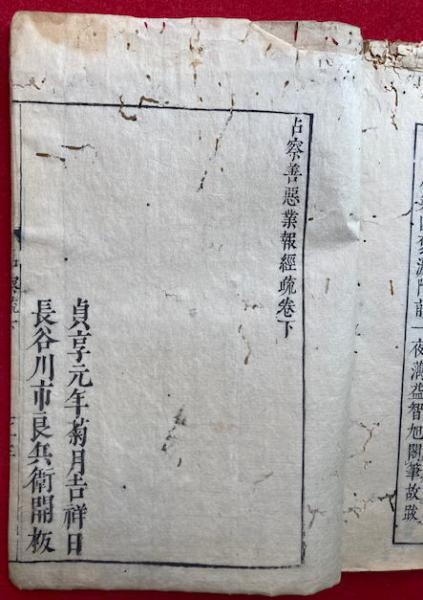 一夜蕅益智旭閣筆故跋
占察善惡業報經疏卷下
貞享元年菊月吉祥日
長谷川市良兵衛開板